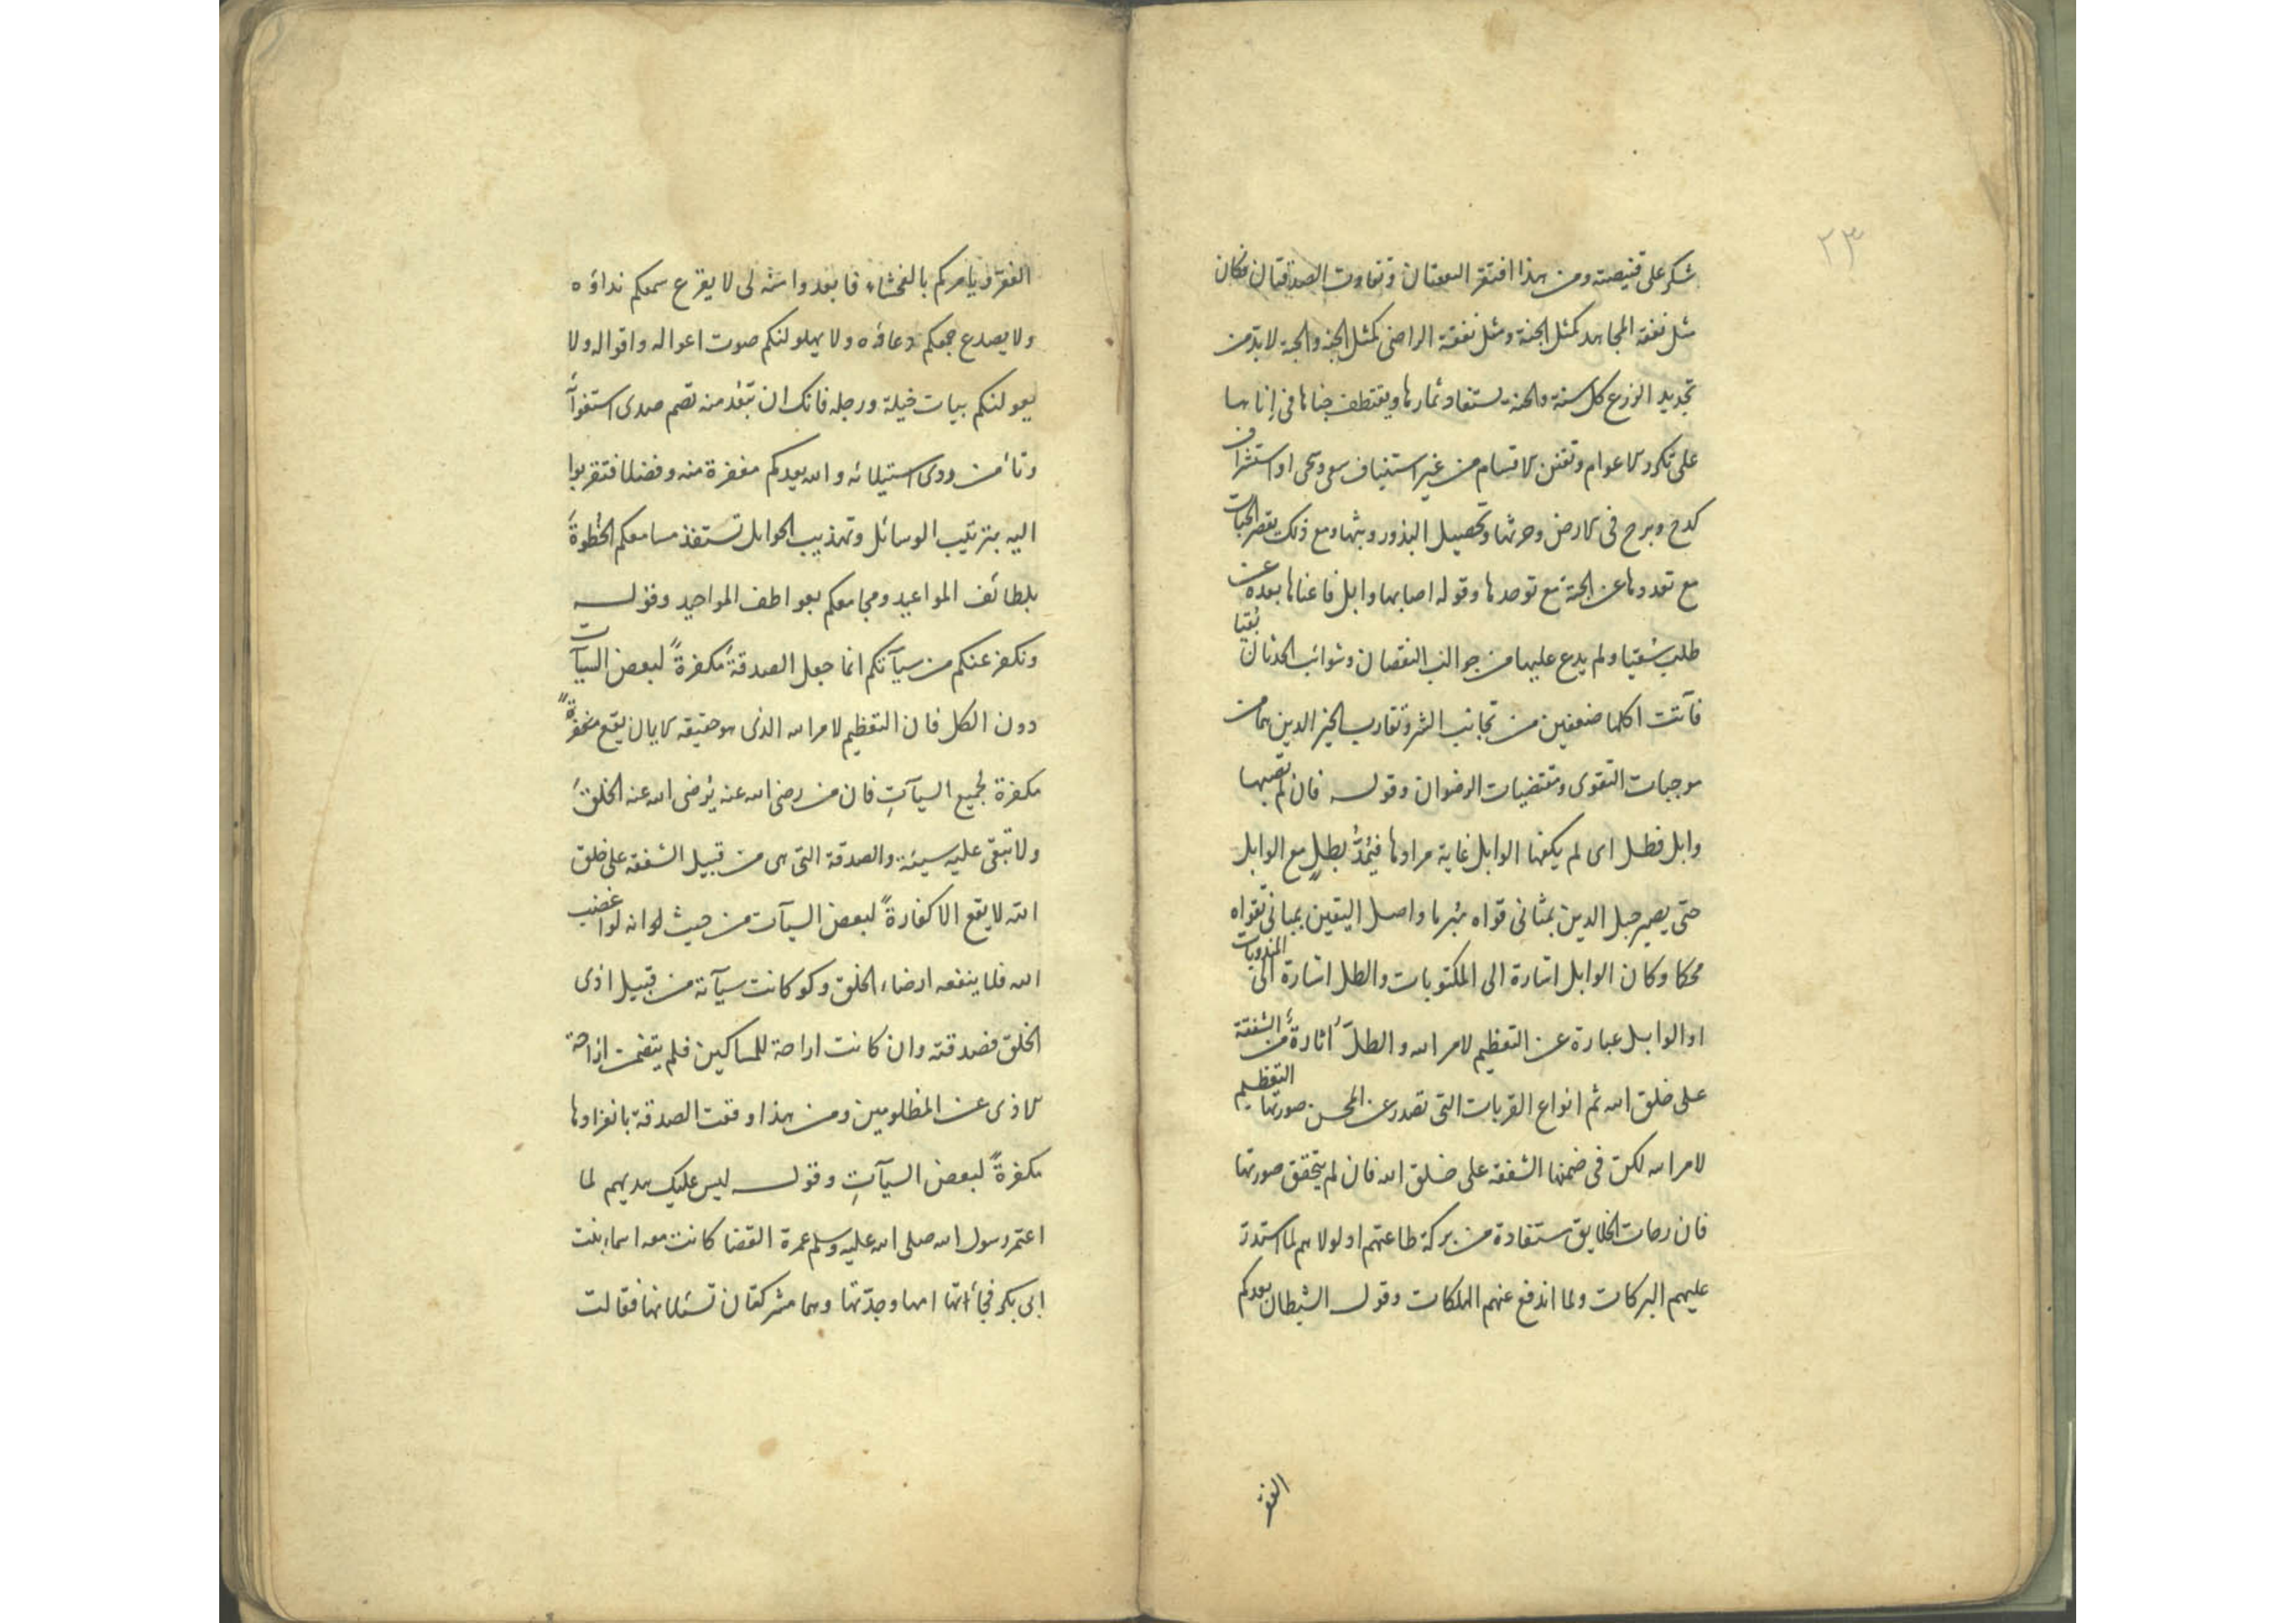 ٢٣
شكر على قنيصته ومن هذا افتقر النعتان وتفاوت الصدقتان فكان
مثل نفقة المجاهد كمثل الحبة ومثل نفقة الراضى كمثل الجنة والحبة لا بد من
تجديد الزرع كل سنة والجنة يستفاد ثمارها ويقتطف جناها فى إنابها
على تكرر الاعوام وتفنن الاقسام من غير استيناف سعى وتحى او استشراف
كدح وبرح فى الارض وحرثها وتحصيل البذور وبثها ومع ذلك يقصر الحبات
مع تعددها عن الجنة مع توحدها وقوله اصابها وابل فاغناها بعده عن
طلب سقيا ولم يدع عليها من جوالب النقصان وشوائب الحدثان بقيا
فآتت اكلها ضعفين من تجانب الشر وتقارب الخير الذين هما من
موجبات التقوى ومقتضيات الرضوان وقوله فان لم يصبها
وابل فطل اى لم يكفها الوابل غاية مرادها فيُمَدُّ بطلٍ مع الوابل
حتى يصير حبل الدين بمثانى قواه مبرما واصل اليقين بمبانى تقواه
محكا وكان الوابل اشارة الى المكتوبات والطل اشارة الى المندوبات
او الوابل عبارة عن التعظيم لامر الله والطلّ اثارةٌ من الشفقة
على خلق الله ثم انواع القربات التى تصدر عن المحسن صورتها التعظيم
لامر الله لكن فى ضمنها الشفقة على خلق الله فان لم يتحقق صورتها
فان رحمات الخلايق مستفادة من بركة طاعتهم اد لولا هم لما استدرت
عليهم البركات ولما اندفع عنهم الهلكات وقوله الشيطان يعدكم
الفقر
الفقر ويأمركم بالفحشاء فابعدوا منه لى لا يقرع سمعكم نداؤه
ولا يصدع جمعكم دعاؤه ولا يهلو لنكم صوت اعواله واقواله ولا
يعولنكم بيات خيلة ورجله فانك ان تبعد منه تصم صدى استغوآئه
وتأمن ردى استيلائه والله يعدكم مغفرة منه وفضلا فتقربوا
اليه بترتيب الوسائل وتهذيب الحوابل تستفذ مسامعكم الخطوةَ
بلطائف المواعيد ومجامعكم بعواطف المواجيد وقوله
ونكفر عنكم من سيآتكم انما جعل الصدقةَ مكفرةً لبعض السيآت
دون الكل فان التعظيم لامر الله الذى هو حقيقه الايمان يقع
مكفرة لجميع السيآتِ فان من رضى الله عنه يُرضى الله عنه الخلقَ
ولا تبقى عليه سيئة والصدقة التى هى من قبيل الشفقه على خلق
الله لا يقع الا كفارةً لبعض السيآت من حيث لو انه لو اغضب
الله فلا ينفعه ارضاء الخلق وكو كانت سيآته من قبيل اذى
الخلق فصدقته وان كانت اراحة للمساكين فلم يتضمن ازاحة
الاذى عن المظلومين ومن هذا وقعت الصدقة بانفرادها
مكفرةً لبعض السيآتِ وقوله ليس عليك هديهم لما
اعتمر رسول الله صلى الله عليه وسلم عمرة القضا كانت معه اسماء بنت
ابى بكر فجأتها امها وجدّتها وهما مشركتان تسئلانها فقالت